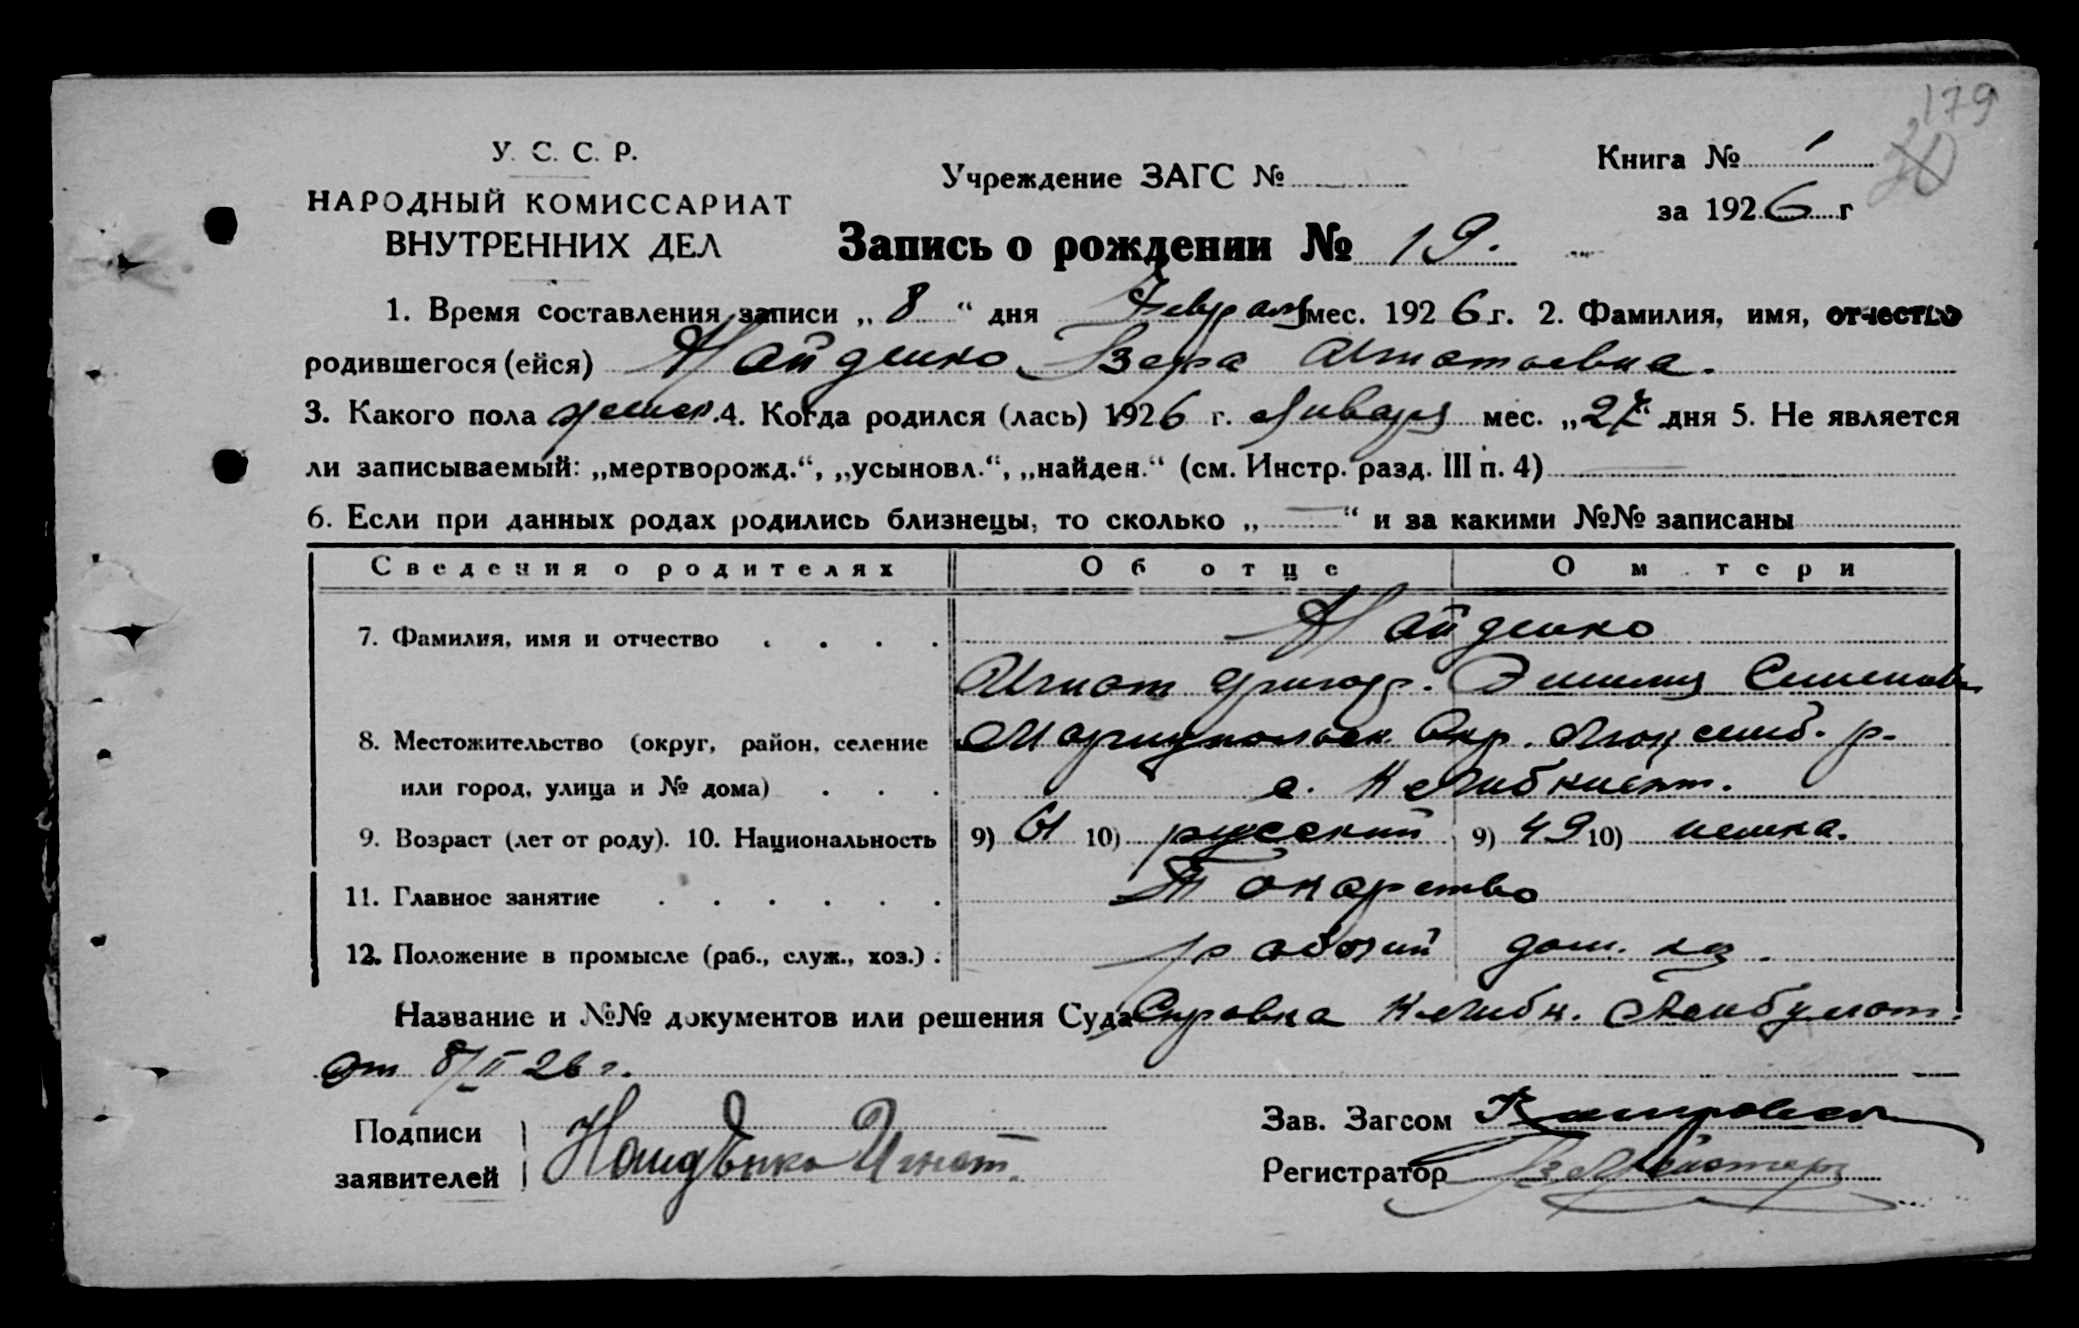 179
У. С. С. Р.
НАРОДНЫЙ КОМИССАРИАТ
ВНУТРЕННИХ ДЕЛ
Учреждение ЗАГС №
Книга № 1
за 1926 г
Запись о рождении № 19.
1. Время составления записи „8“ дня Февраля мес. 1926 г. 2. Фамилия, имя, отчество
родившегося (ейся) Найденко Вера Игнатьевна.
3. Какого пола женск. 4. Когда родился (лась) 1926 г. Января мес. „27“ дня 5. Не является
ли записываемый: „мертворожд.“, „усыновл.“, „найден.“ (см. Инстр. разд. III п. 4)
6. Если при данных родах родились близнецы, то сколько „—“ и за какими №№ записаны
Сведения о родителях Об отце О м тери
7. Фамилия, имя и отчество . . . . Найденко
Игнат Григор. Эмилия Семенов
8. Местожительство (округ, район, селение Мариупольск. Окр. Люксемб. р.
или город, улица и № дома) . . . с. Кельчикиент.
9. Возраст (лет от роду). 10. Национальность 9) 61 10) русский 9) 49 10) немка.
11. Главное занятие . . . . . . Токарство
12. Положение в промысле (раб., служ., хоз.) . рабочий дом. хоз.
Название и №№ документов или решения Суда Справка
от 8/II 26 г.
Подписи
заявителей
Найдѣнко Игнат.
Зав. Загсом
Регистратор